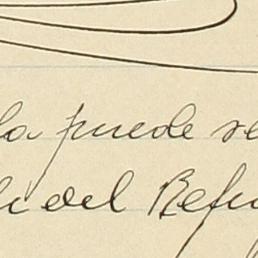 la puede se
del Refu